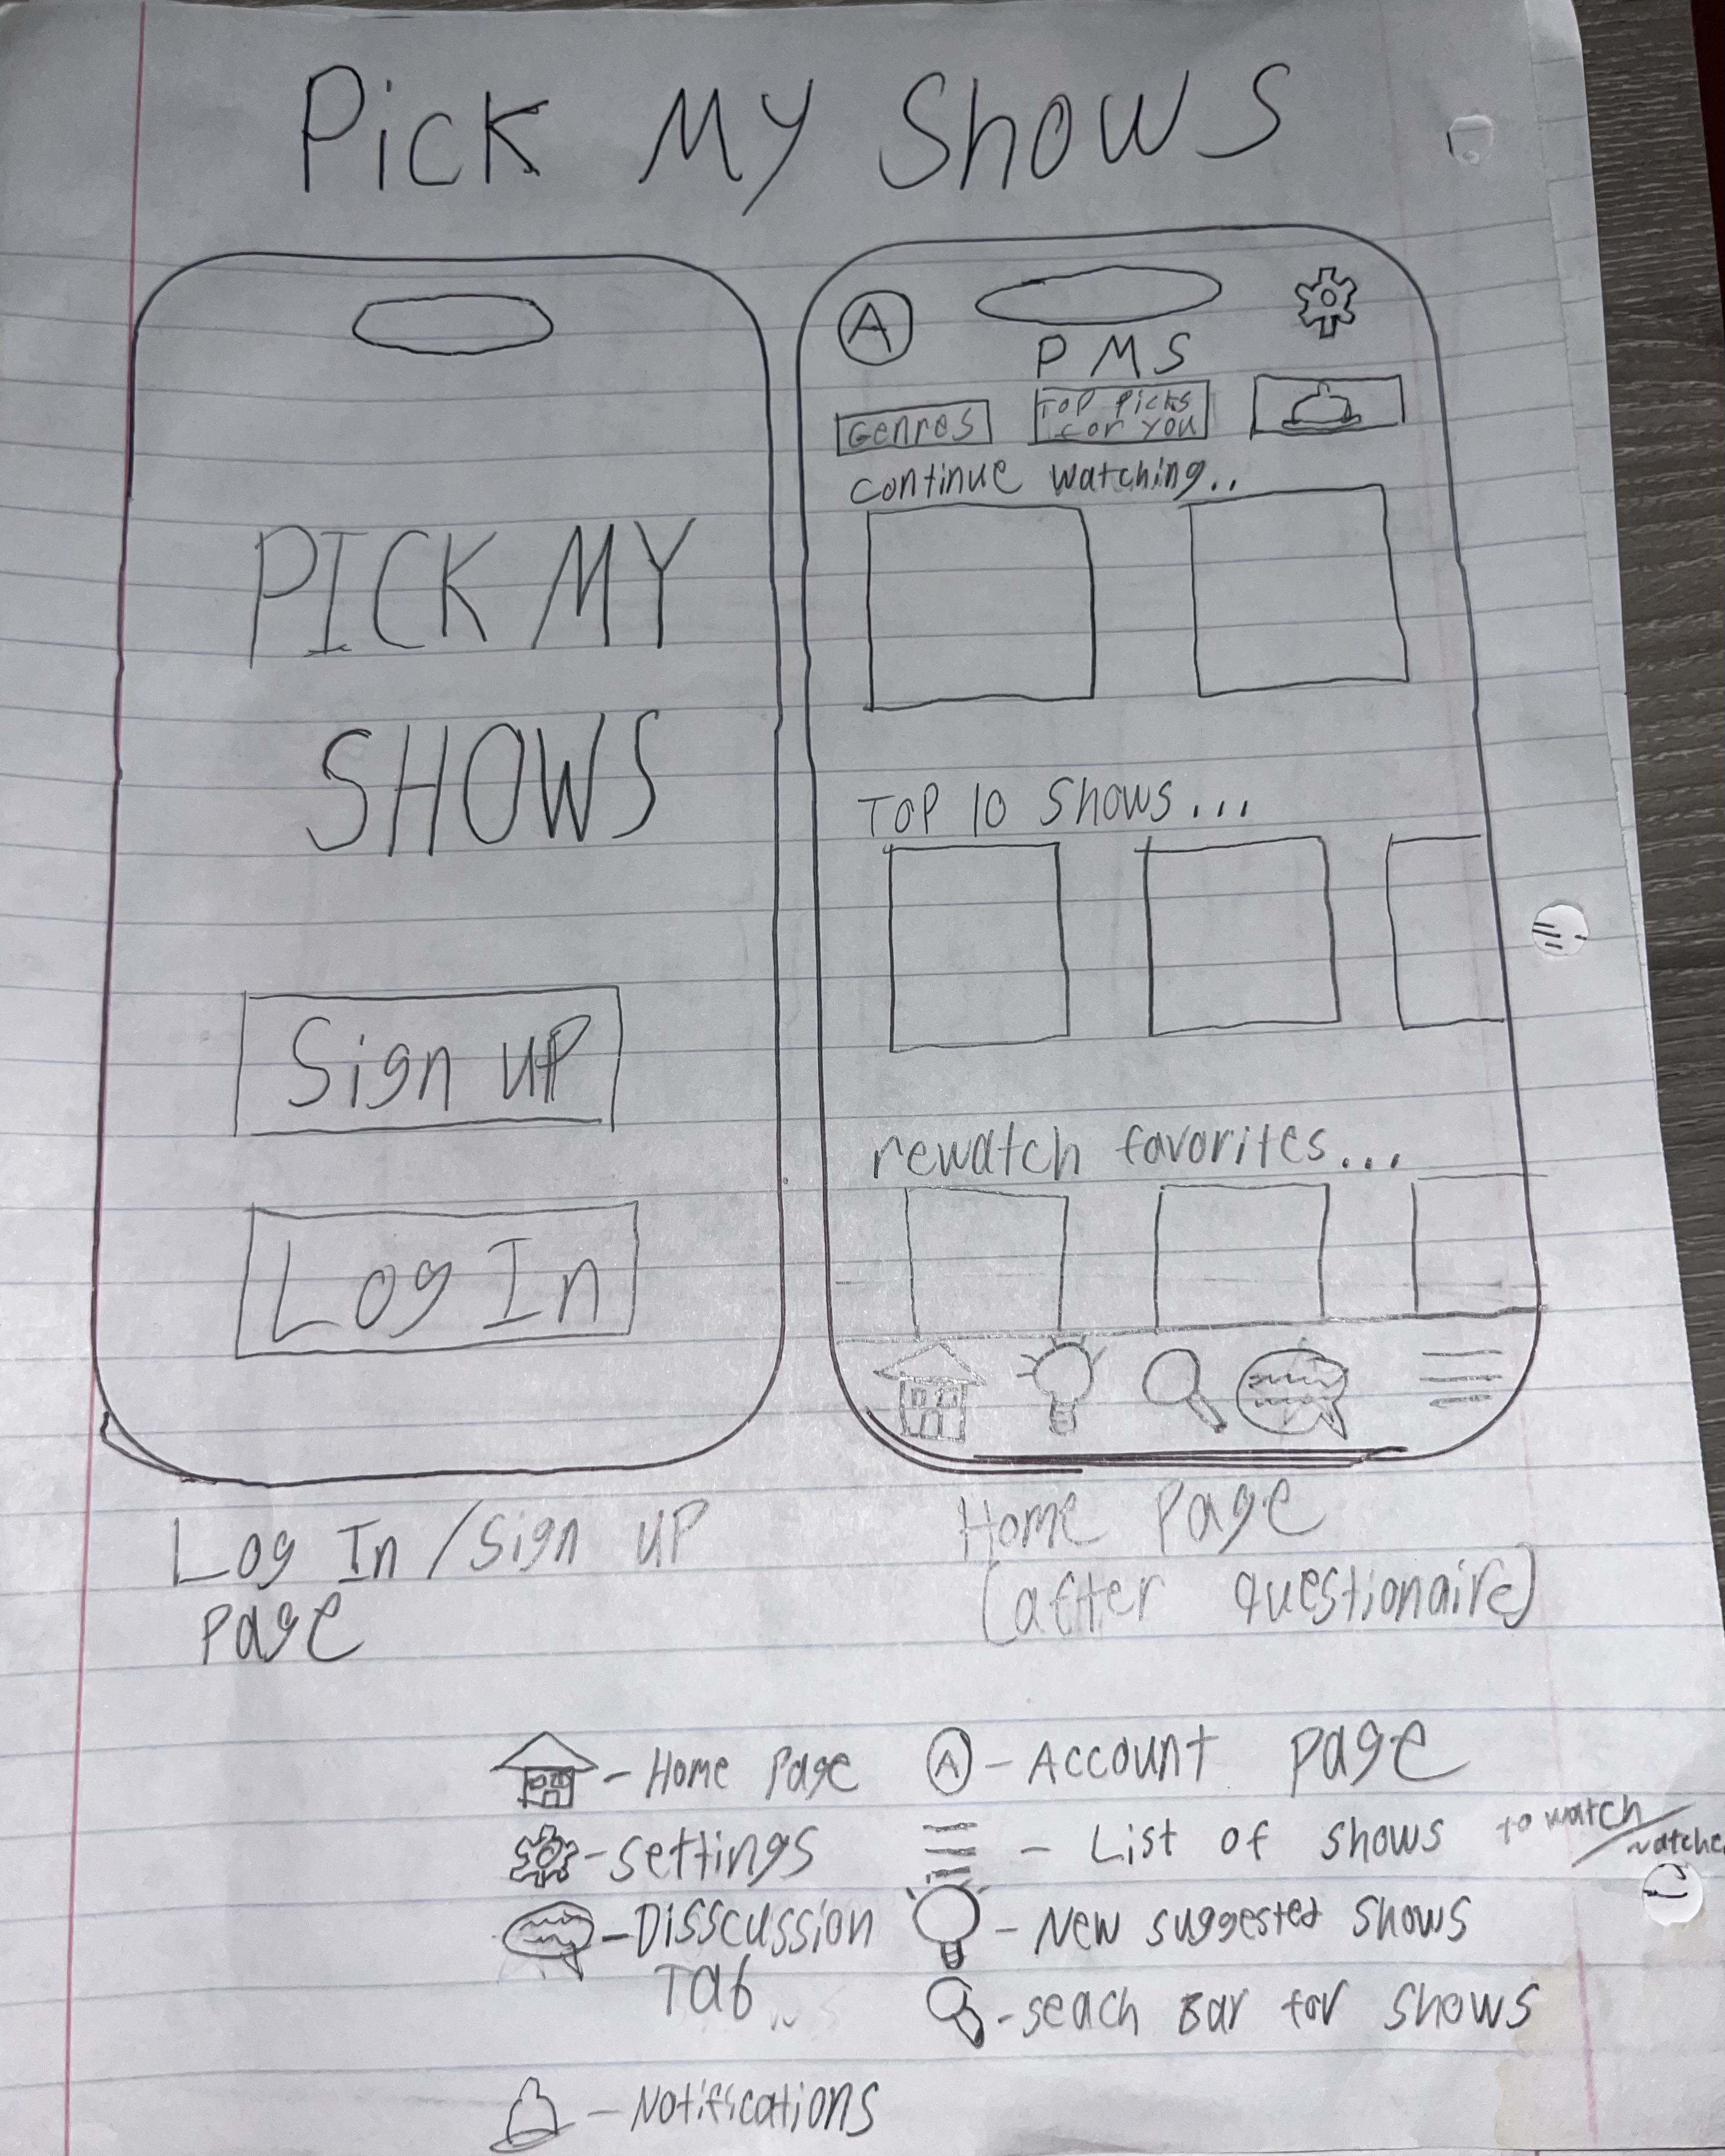 Pick My Shows
PICK MY
SHOWS
Sign UP
Log In
Log In / Sign UP
Page
A
P M S
Genres
TOP Picks
for YOU
continue watching..
TOP 10 Shows...
rewatch favorites...
Home Page
(after questionaire)
- Home Page
- settings
- Disscussion
Tab
- Notifications
A - Account Page
- List of shows to watch/
watche
- New suggested shows
- seach Bar for shows